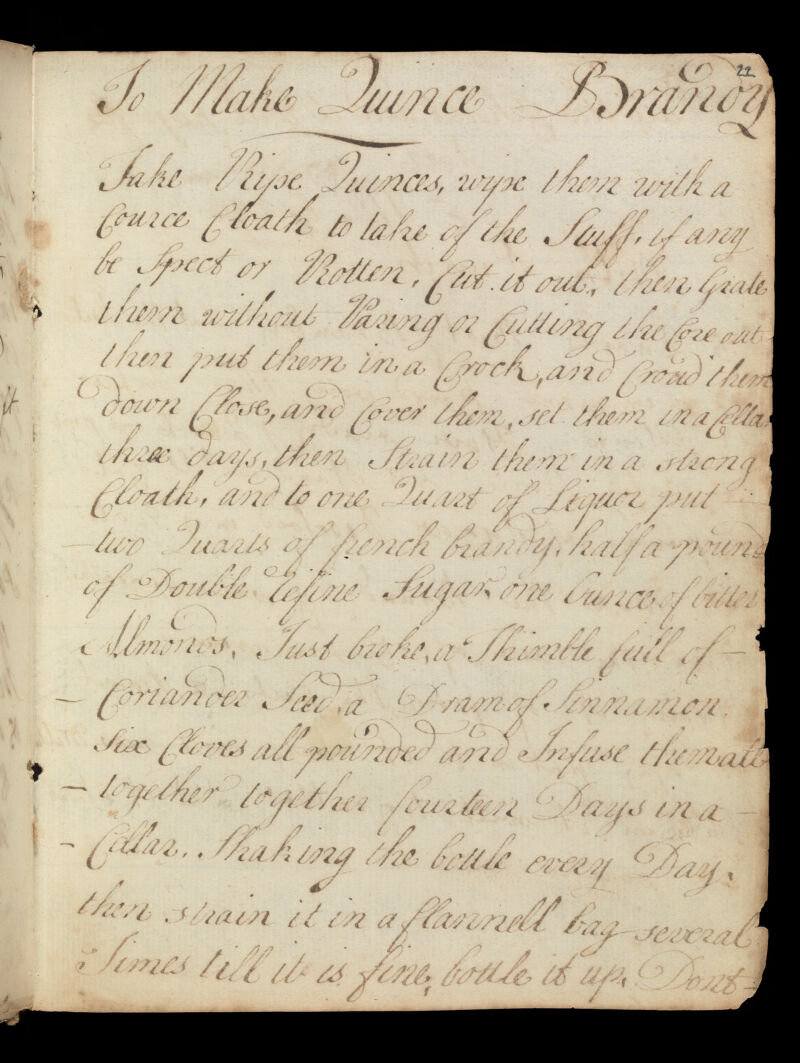 22
To Make Quince Brandy
Take Ripe Quinces, wipe them with a
Cource Cloath to take of the Stuff, if any
be Spect or Rotten, Cut it out, then Grate
them without Paring or Cutting the Core out
then put them in a Crock, and Croud them
down Close, and Cover them, set them in a Cella
three days, then Strain them in a strong
Cloath, and to one Quart of Liquor put
two Quarts of french brandy, half a pound
of Double refine Sugar, one Ounce of bitter
Almonds, Just broke, a Thimble full of –
– Coriander Seed, a Dram of Sinnamon,
Six Cloves all pounded and Infuse them all
– together together fourteen Days in a –
– Cellar, Shaking the bottle every Day,
then strain it in a flannell bag several
Times till it is fine, bottle it up, Dont –